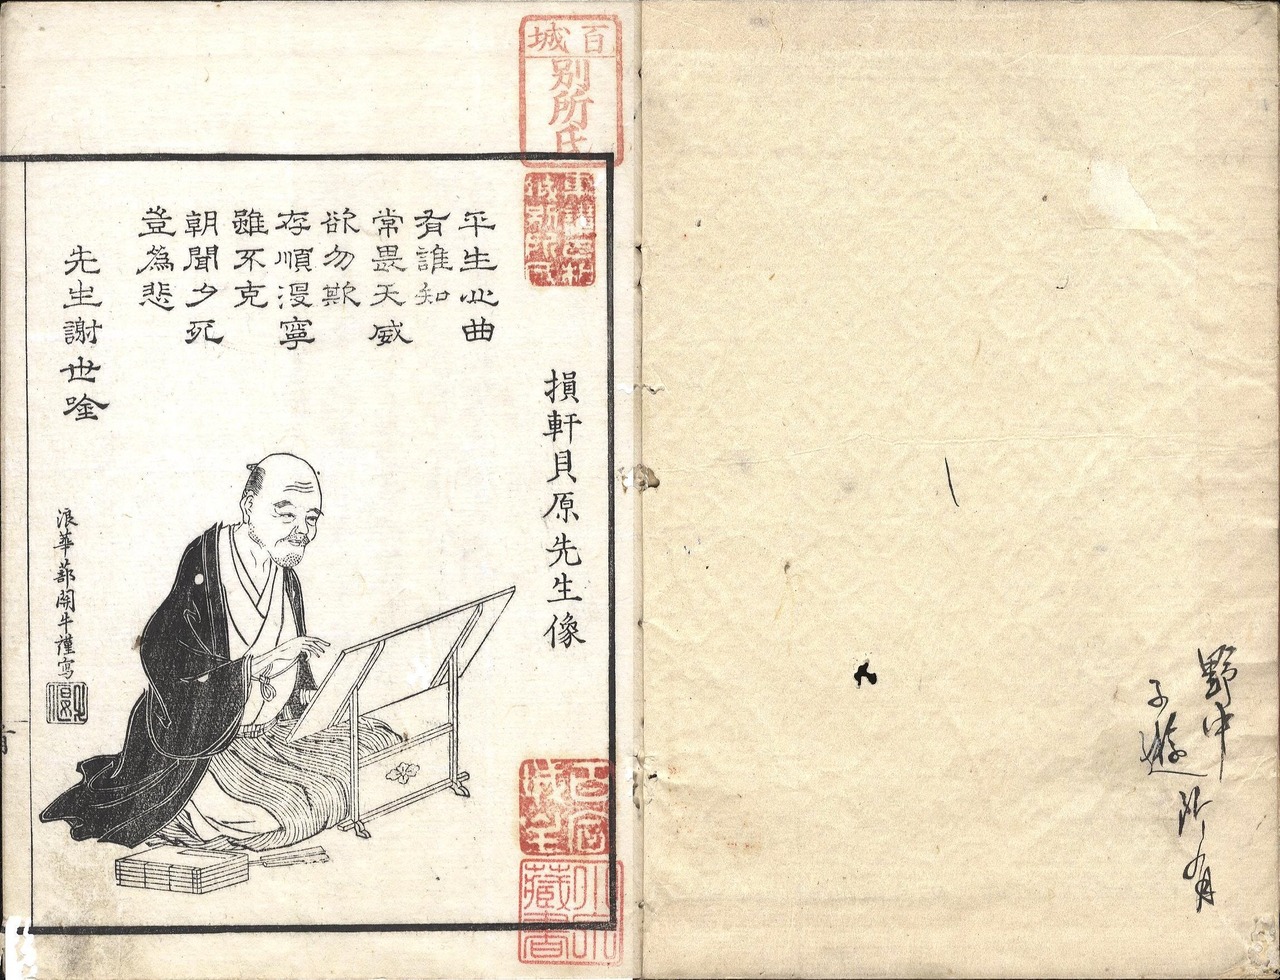 野中
子遊
所有
百城
別所氏
損軒貝原先生像
平生心曲
有誰知
常畏天威
欲勿欺
存順没寧
雖不克
朝聞夕死
豈為悲
先生謝世唫
浪華蔀関牛謹寫
藏書